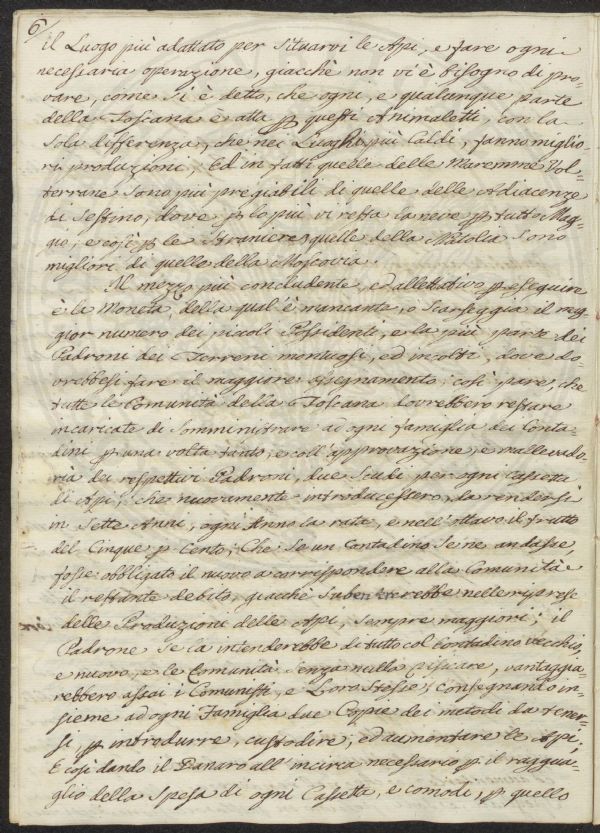 6
il Luogo più adattato per situarvi le Api, e fare ogni
necessaria operazione, giacchè non vi è bisogno di pro-
vare, come si è detto, che ogni, e qualunque parte
della Toscana è atta p questi Animaletti, con la
sola differenza, che nei Luoghi più Caldi, fanno miglio-
ri produzioni; Ed in fatti quelle delle Maremme Vol-
terrane sono più pregiabili di quelle delle Adiacenze
di Sestino, dove p lo più vi resta la neve p tutto Mag-
gio, e così p le straniere, quelle della Sono
migliori di quelle della Moscovia.
Il mezzo più concludente, ed allettativo p eseguire
è la Moneta, della qual'è mancante, o scarseggia il mag-
gior numero dei piccoli Possidenti, e la più parte dei
Padroni dei Terreni montuosi, ed incolti, dove do-
vrebbesi fare il maggiore assegnamento; così pare, che
tutte le Comunità della Toscana dovrebbero restare
incaricate di somministrare ad ogni famiglia dei Conta-
dini p una volta tanto, e coll'approvazione, e mallevado-
ria dei respettivi Padroni, due Scudi per ogni Cassetta
di Api, che nuovamente introducessero, da rendersi
in Sette Anni, ogni Anno la rata, e nell'ottavo il frutto
del Cinque p Cento; Che se un Contadino se ne andasse,
fosse obbligato il nuovo a corrispondere alla Comunità
il restante debito, giacchè subentrerebbe nelle riprese
delle Produzioni delle Api, sempre maggiori; il
Padrone se la intenderebbe di tutto col Contadino vecchio,
e nuovo, e le Comunità senza nulla pisicare, vantaggia-
rebbero assai i Comunisti, e Loro stesse; consegnando in-
sieme ad ogni Famiglia due Coppie dei metodi da tener-
si, p introdurre, custodire, ed aumentare le Api;
E così dando il Danaro all'incirca necessario p il raggua-
glio della spesa di ogni Cassetta, e comodi, p quello